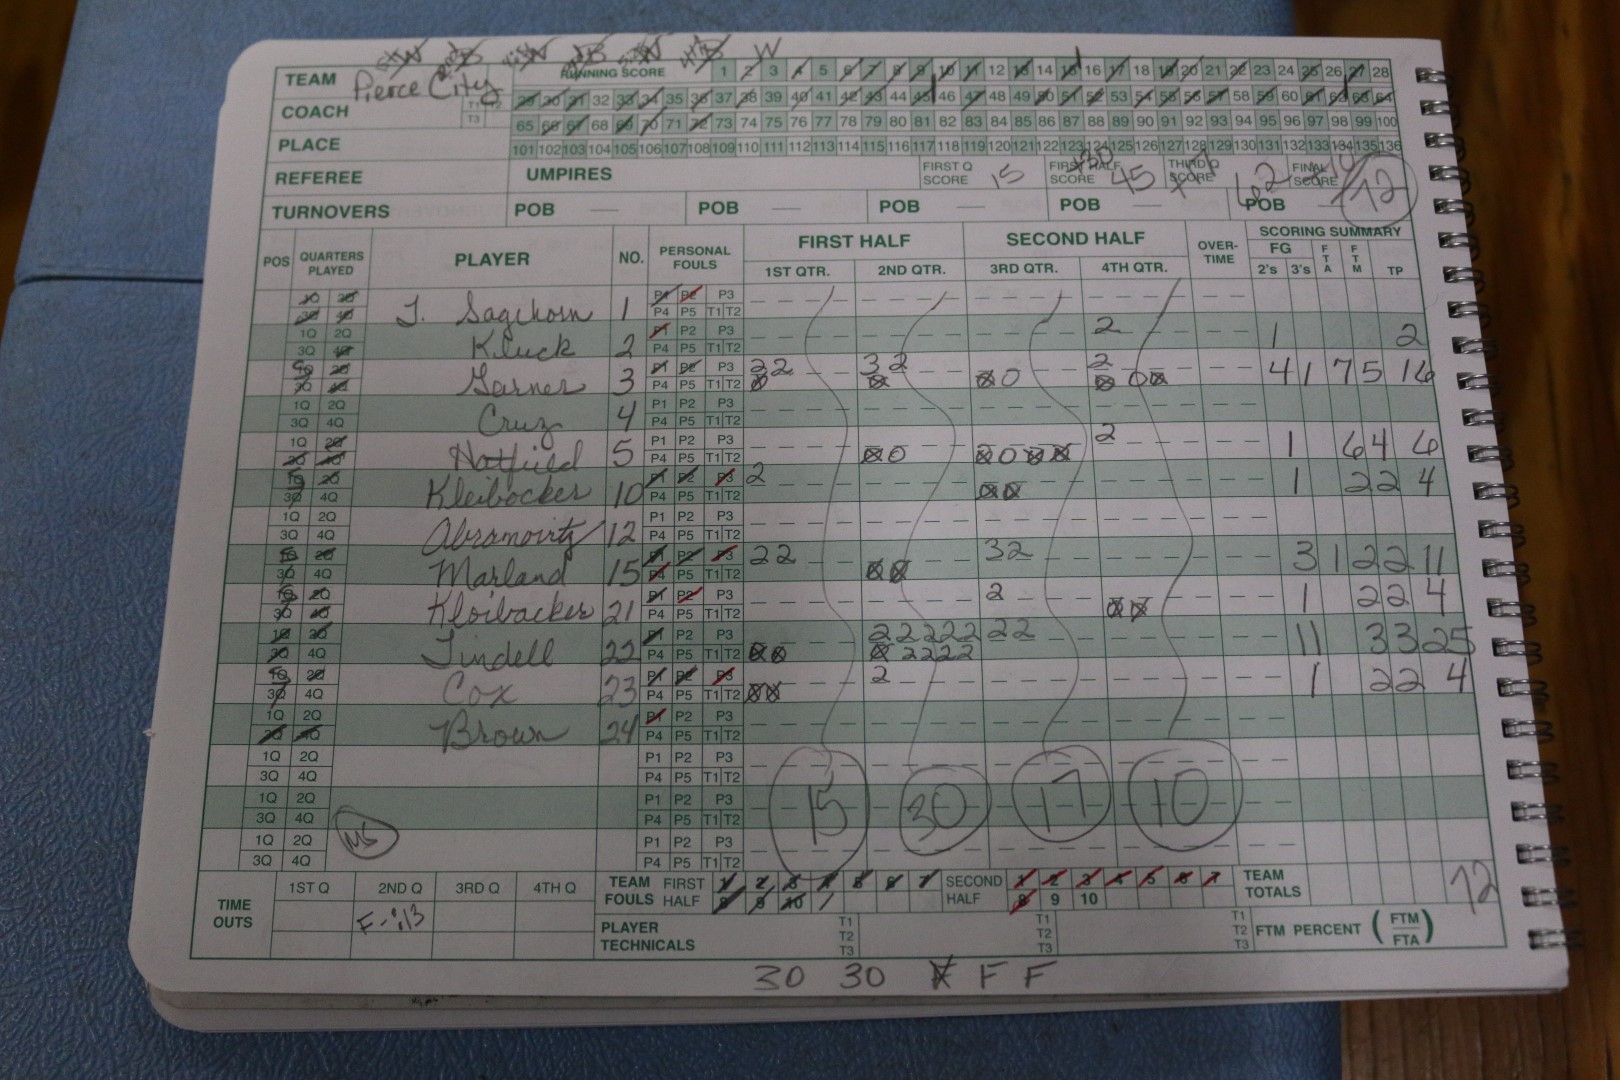 TEAM Pierce City RUNNING SCORE 1 2 3 4 5 6 7 8 9 10 11 12 13 14 15 16 17 18 19 20 21 22 23 24 25 26 27 28
COACH T1 T2 T3 29 30 31 32 33 34 35 36 37 38 39 40 41 42 43 44 45 46 47 48 49 50 51 52 53 54 55 56 57 58 59 60 61 62 63 64
65 66 67 68 69 70 71 72 73 74 75 76 77 78 79 80 81 82 83 84 85 86 87 88 89 90 91 92 93 94 95 96 97 98 99 100
PLACE 101 102 103 104 105 106 107 108 109 110 111 112 113 114 115 116 117 118 119 120 121 122 123 124 125 126 127 128 129 130 131 132 133 134 135 136
REFEREE UMPIRES FIRST Q SCORE 15 FIRST HALF SCORE +30 45 THIRD Q SCORE +17 62 FINAL SCORE +10 72
TURNOVERS POB POB POB POB POB
POS QUARTERS PLAYED PLAYER NO. PERSONAL FOULS FIRST HALF SECOND HALF OVER-TIME SCORING SUMMARY
1ST QTR. 2ND QTR. 3RD QTR. 4TH QTR. FG 2's 3's FTA FTM TP
J. Sagehorn 1 P1 P2 P3 P4 P5 T1 T2
1Q 2Q 3Q 4Q Kluck 2 P1 P2 P3 P4 P5 T1 T2 2 1 2
Garner 3 P1 P2 P3 P4 P5 T1 T2 2 2 3 2 2 4 1 7 5 16
1Q 2Q 3Q 4Q Cruz 4 P1 P2 P3 P4 P5 T1 T2
1Q 2Q 3Q 4Q Hatfield 5 P1 P2 P3 P4 P5 T1 T2 2 1 6 4 6
1Q 2Q 3Q 4Q Kleibocker 10 P1 P2 P3 P4 P5 T1 T2 2 1 2 2 4
1Q 2Q 3Q 4Q Abramovitz 12 P1 P2 P3 P4 P5 T1 T2
1Q 2Q 3Q 4Q Marland 15 P1 P2 P3 P4 P5 T1 T2 2 2 3 2 3 1 2 2 11
1Q 2Q 3Q 4Q Kloibacker 21 P1 P2 P3 P4 P5 T1 T2 2 1 2 2 4
1Q 2Q 3Q 4Q Tindell 22 P1 P2 P3 P4 P5 T1 T2 2 2 2 2 2 2 2 2 2 2 2 11 3 3 25
1Q 2Q 3Q 4Q Cox 23 P1 P2 P3 P4 P5 T1 T2 2 1 2 2 4
1Q 2Q 3Q 4Q Brown 24 P1 P2 P3 P4 P5 T1 T2
1Q 2Q 3Q 4Q P1 P2 P3 P4 P5 T1 T2
1Q 2Q 3Q 4Q P1 P2 P3 P4 P5 T1 T2 15 30 17 10
1Q 2Q 3Q 4Q MS P1 P2 P3 P4 P5 T1 T2
TIME OUTS 1ST Q 2ND Q 3RD Q 4TH Q TEAM FOULS FIRST HALF 1 2 3 4 5 6 7 8 9 10 SECOND HALF 1 2 3 4 5 6 7 8 9 10 TEAM TOTALS 72
F-:13 PLAYER TECHNICALS T1 T2 T3 T1 T2 T3 T1 T2 T3 FTM PERCENT (FTM/FTA)
30 30 F F